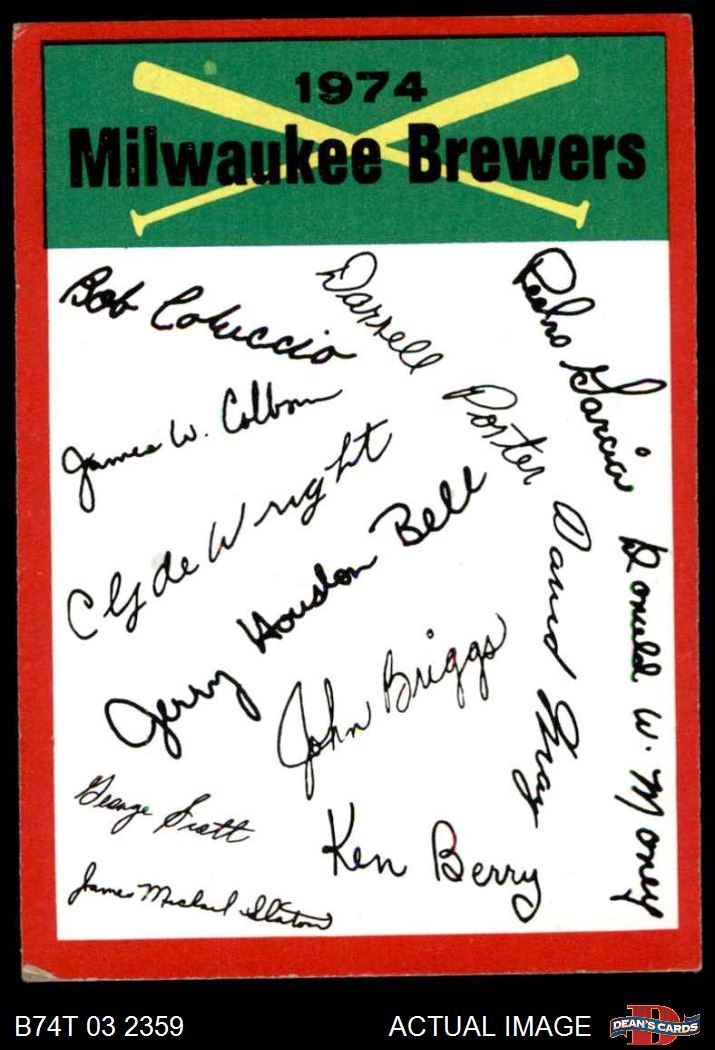 1974
Milwaukee Brewers
Bob Coluccio
Darrell Porter
Pedro Garcia
James W. Colborn
Clyde Wright
Jerry Houston Bell
David May
Donald W. Money
John Briggs
George Scott
Ken Berry
James Michael Slaton
B74T 03 2359
ACTUAL IMAGE
DEAN'S CARDS